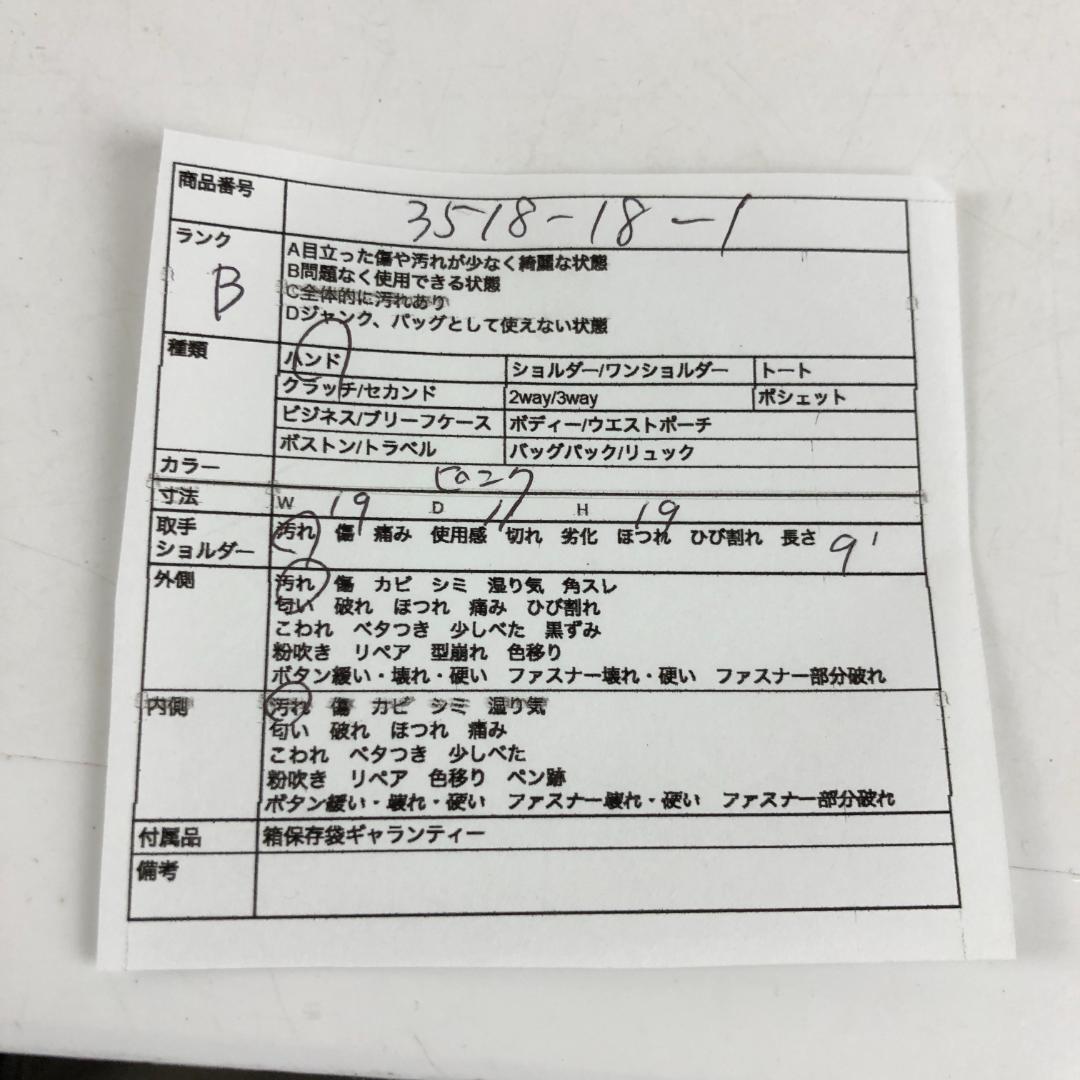 商品番号 3518-18-1
ランク B
A目立った傷や汚れが少なく綺麗な状態
B問題なく使用できる状態
C全体的に汚れあり
Dジャンク、バッグとして使えない状態
種類 ハンド ショルダー/ワンショルダー トート
クラッチ/セカンド 2way/3way ポシェット
ビジネス/ブリーフケース ボディー/ウエストポーチ
ボストン/トラベル バッグパック/リュック
カラー
寸法 W 19 D 11 H 19
取手 汚れ 傷 痛み 使用感 切れ 劣化 ほつれ ひび割れ 長さ 91
ショルダー
外側 汚れ 傷 カビ シミ 湿り気 角スレ
匂い 破れ ほつれ 痛み ひび割れ
こわれ ベタつき 少しべた 黒ずみ
粉吹き リペア 型崩れ 色移り
ボタン緩い・壊れ・硬い ファスナー壊れ・硬い ファスナー部分破れ
内側 汚れ 傷 カビ シミ 湿り気
匂い 破れ ほつれ 痛み
こわれ ベタつき 少しべた
粉吹き リペア 色移り ペン跡
ボタン緩い・壊れ・硬い ファスナー壊れ・硬い ファスナー部分破れ
付属品 箱保存袋ギャランティー
備考